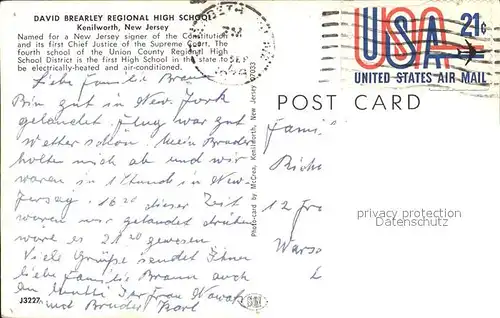 DAVID BREARLEY REGIONAL HIGH SCHOOL
Kenilworth, New Jersey
Named for a New Jersey signer of the Constitution
and its first Chief Justice of the Supreme Court. The
fourth school of the Union County Regional High
School District is the first High School in the state to
be electrically-heated and air-conditioned.
21¢
USA
UNITED STATES AIR MAIL
POST CARD
Liebe Familie Braun
Bin gut in New York
gelandet. Flug war gut
Wetter schön. Mein Bruder
holte mich ab und wir
waren in 1 Stund in New-
Jersey. 16 20 dieser Zeit
waren wir gelandet drüben
wäre es 21 20 gewesen
Viele Grüße sendet Ihnen
liebe Familie Braun auch
Ihr Frau Nowak
und Bruder Karl
Famil
12
privacy protection
watermark
Photo-card by McCrea, Kenilworth, New Jersey 07033
J3227